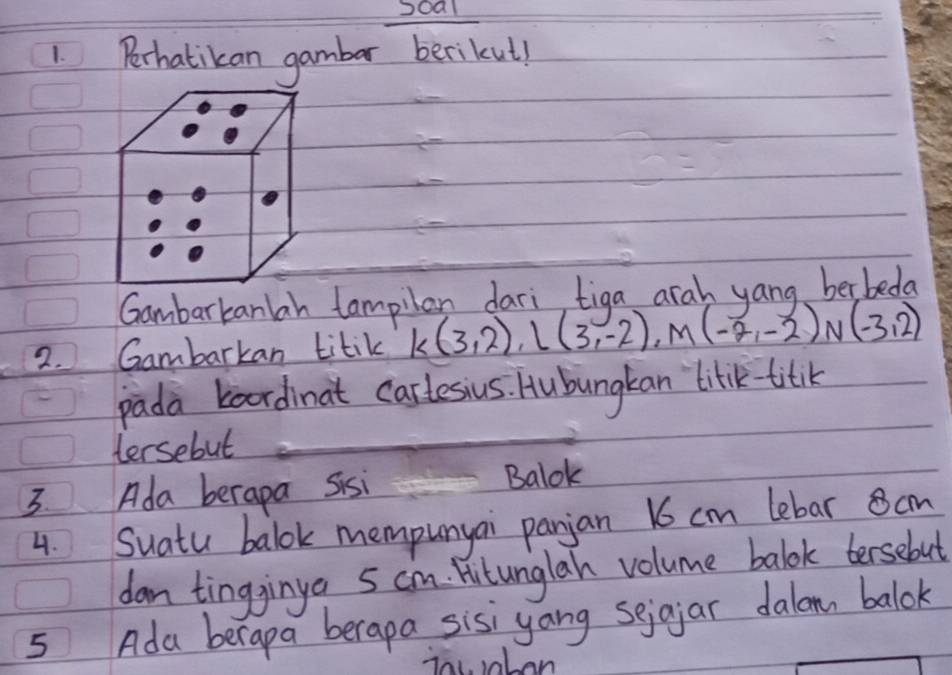 Soal
1. Perhatikan gambar berikut!
Gambarkanlah tampilan dari tiga arah yang berbeda
2. Gambarkan titik K(3,2), L(3,-2), M(-2,-2) N(-3,2)
pada koordinat cartesius. Hubungkan titik-titik
tersebut
3. Ada berapa sisi Balok
4. Suatu balok mempunyai panjan 16 cm lebar 8 cm
dan tingginya 5 cm. Hitunglah volume balok tersebut
5 Ada berapa berapa sisi yang sejajar dalam balok
jawaban